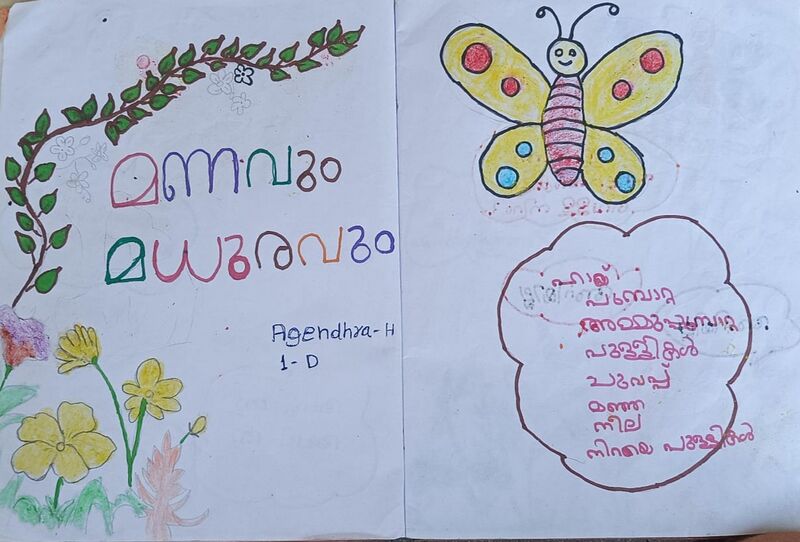 മണവും
മധുരവും
Agendhra-H
1-D
ഹായ്
പൂമ്പാറ്റ
അമ്മുപൂമ്പാറ്റ
പുള്ളികൾ
ചുവപ്പ്
മഞ്ഞ
നീല
നിറയെ പുള്ളികൾ